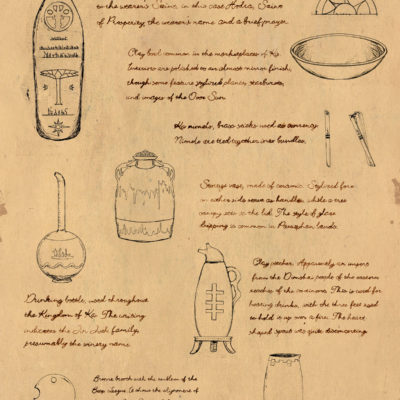 to the wearer's Saint, in this case Hodra, Saint
of Prosperity, the wearer's name and a brief prayer.
Clay bowl common in the marketplaces of Ka.
Interiors are polished to an almost mirror finish,
though some feature stylized planes, creatures,
and images of the Over Sun.
Ka nimels, brass sticks used as currency.
Nimels are tied together into bundles.
Storage vase, made of ceramic. Stylized fire
on either side serve as handles, while a tree
canopy sits as the lid. The style of glaze
dripping is common in lands.
Clay pitcher. Apparently an import
from the people of the eastern
reaches of the continent. This is used for
heating drinks, with the three feet used
to hold it up over a fire. The heart
shaped spout was quite disconcerting.
Drinking bottle, used throughout
the Kingdom of Ka. The writing
indicates the family,
presumably the winery name.
Bronze brooch with the emblem of the
League. It shows the alignment of